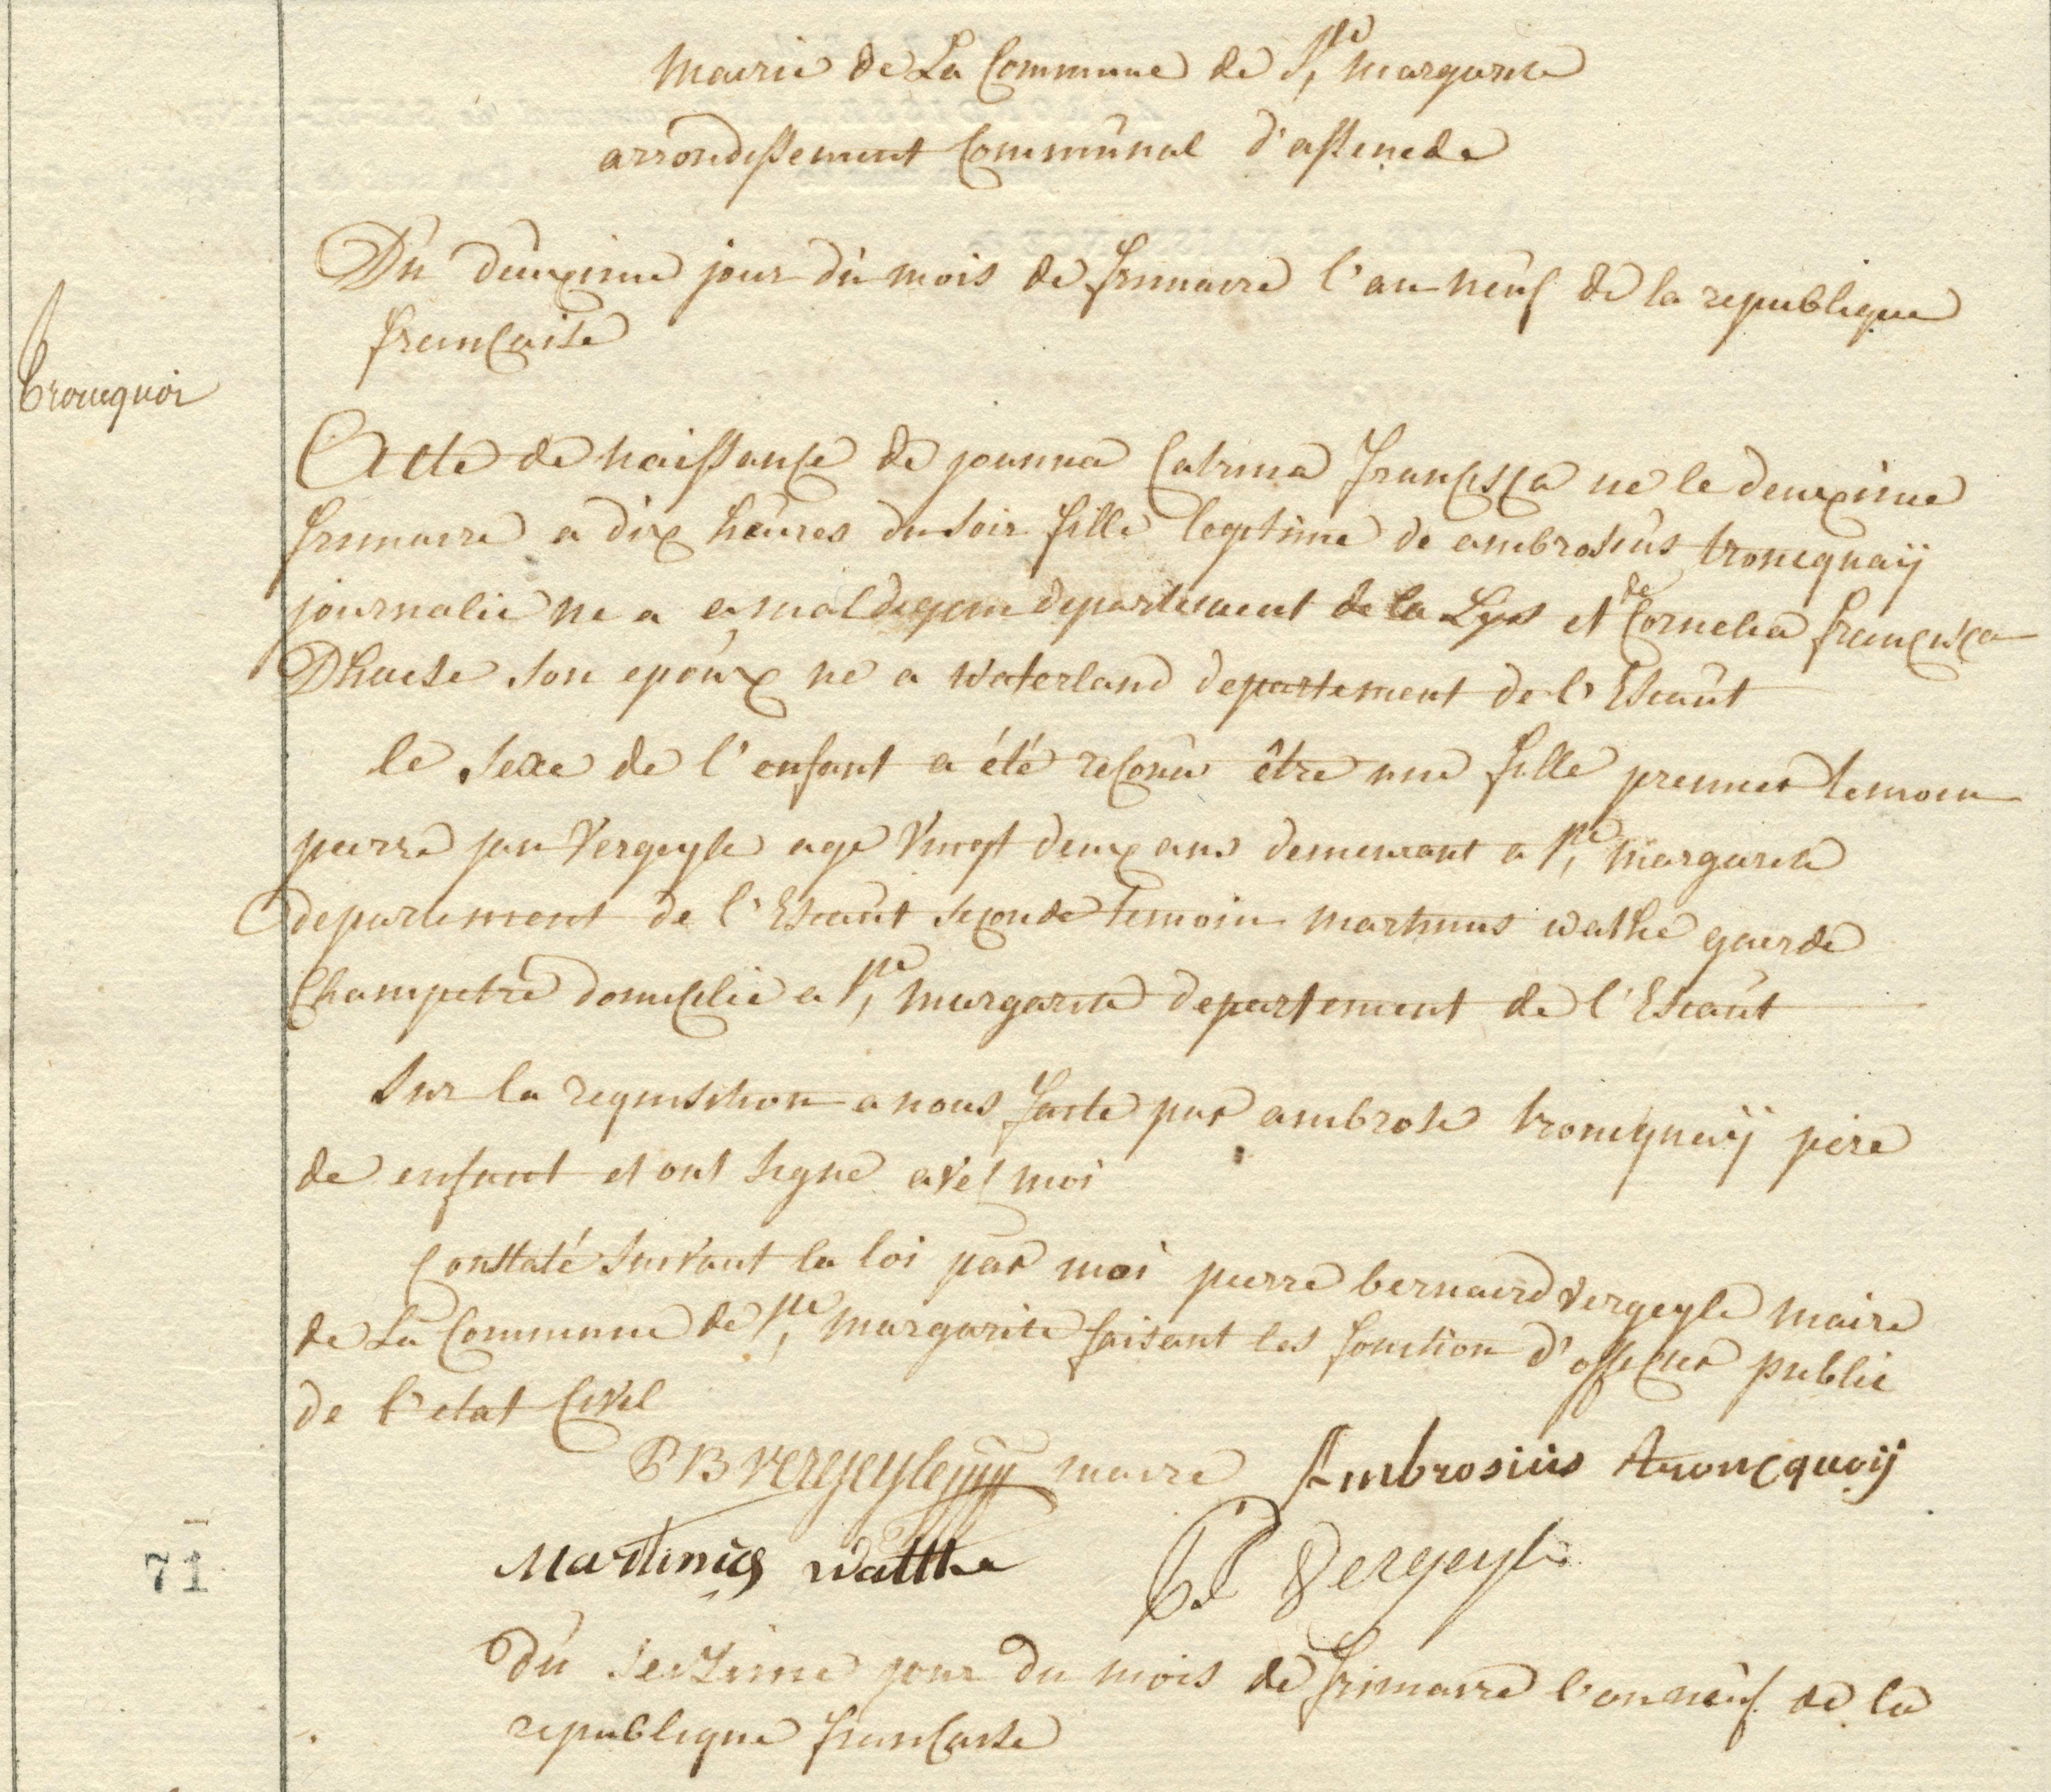 Mairie de La Commune de Ste Margarite
arrondissement Communal d'assenede
Du deuxcime jour du mois de frimaire l'an neuf de la republique
francaise
troncquoi
Acte de naissance de joanna Catrina francisca ne le deuxcime
frimaire a dix heures du soir fille legitime de ambrosius troncquaÿ
journalie ne a a maldegem departement de la Lys et de Cornelia francisca
Dhaese son epoux ne a waterland departement de l'Escaut
le sexe de l'enfant a été reconu être une fille premier temoin
pierre jan Vergeyle age Vingt deux ans demeurant a Ste Margarite
departement de l'Escaut seconde temoin martinus wathe gaerde
Champetre domicilie a Ste Margarite departement de l'Escaut
sur la requisition a nous faite par ambrose troncquaÿ père
de enfant et ont signe avec moi
Constaté suivant la loi par moi pierre bernaerd vergeyle maire
de La Commune de Ste Margarite faisant les fonction d'officier public
de l'etat Civil
PB vergeyle maire Ambrosius troncquoÿ
Martinus watthe PJ Vergeyle
71
du seizime jour du mois de frimaire l'an neuf de la
republique francaise